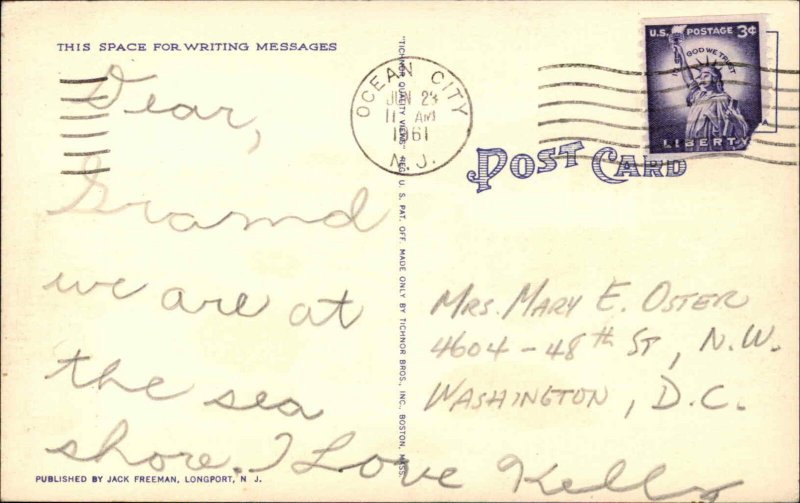 THIS SPACE FOR WRITING MESSAGES
Dear,
Gramd
we are at
the sea
shore. I Love Kelly
PUBLISHED BY JACK FREEMAN, LONGPORT, N. J.
"TICHNOR QUALITY VIEWS" REG. U. S. PAT. OFF. MADE ONLY BY TICHNOR BROS., INC., BOSTON, MASS.
OCEAN CITY
JUN 29
11 AM
1961
N.J.
U.S. POSTAGE 3¢
IN GOD WE TRUST
LIBERTY
POST CARD
MRS. MARY E. OSTER
4604-48th ST, N.W.
WASHINGTON, D.C.